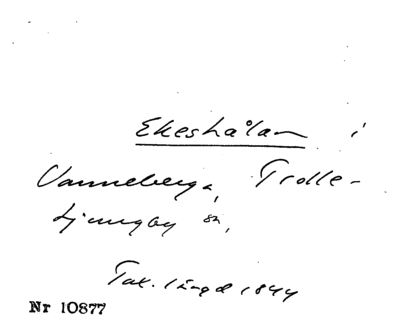 Ekeshålan i
Vanneberga, Trolle-
Ljungby sn,
Tax. längd 1844
Nr 10877